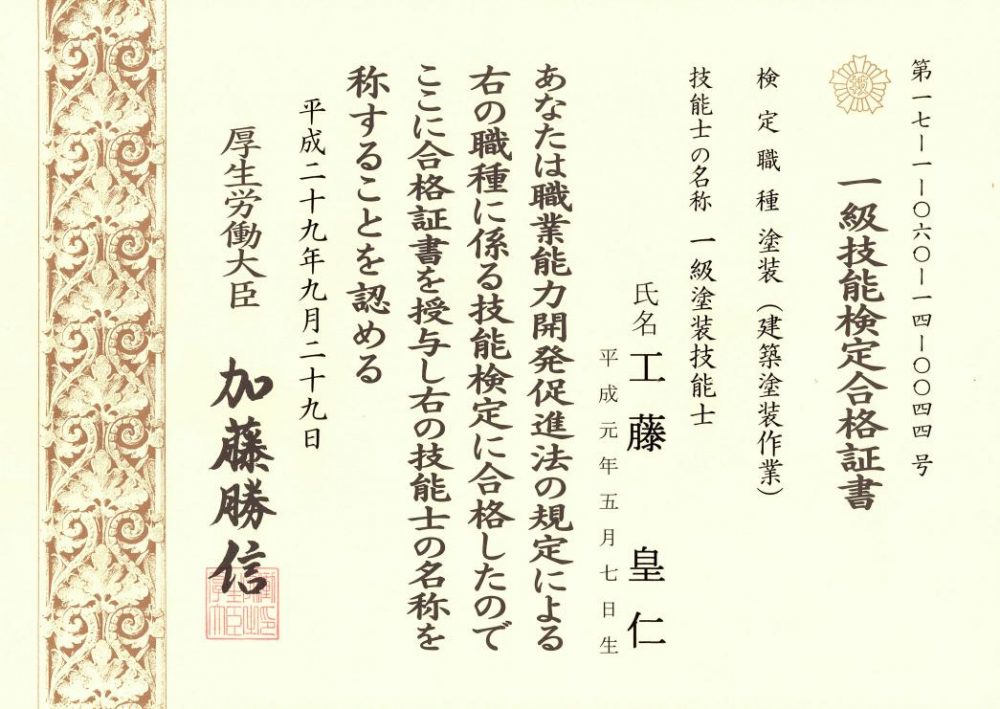 第一七ー一ー〇六〇ー一四ー〇〇四四号
一級技能検定合格証書
検定職種 塗装（建築塗装作業）
技能士の名称 一級塗装技能士
氏名 工藤 皇仁
平成元年五月七日生
あなたは職業能力開発促進法の規定による
右の職種に係る技能検定に合格したので
ここに合格証書を授与し右の技能士の名称を
称することを認める
平成二十九年九月二十九日
厚生労働大臣 加藤勝信